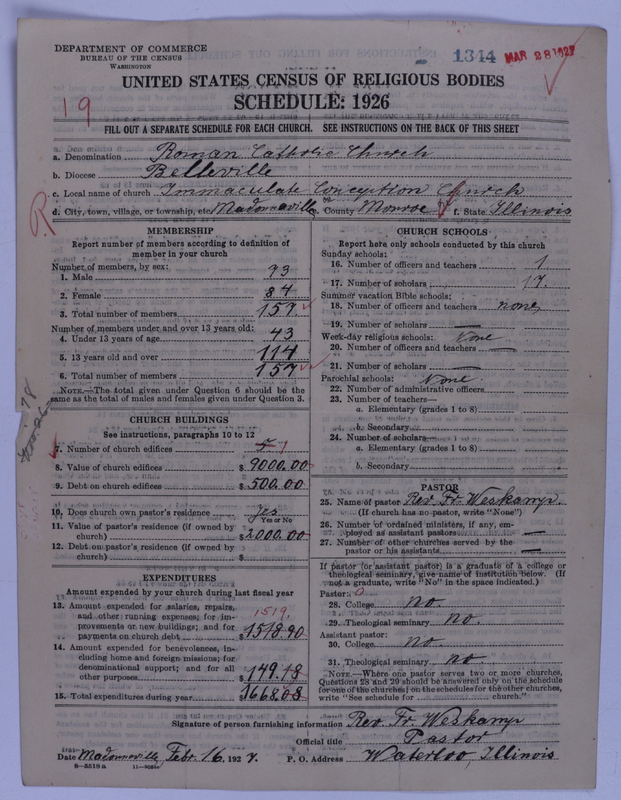 DEPARTMENT OF COMMERCE
BUREAU OF THE CENSUS
WASHINGTON
1344
MAR 28 1927
UNITED STATES CENSUS OF RELIGIOUS BODIES
SCHEDULE: 1926
19
FILL OUT A SEPARATE SCHEDULE FOR EACH CHURCH. SEE INSTRUCTIONS ON THE BACK OF THIS SHEET
a. Denomination Roman Catholic Church
b. Diocese Belleville
c. Local name of church Immaculate Conception Church
d. City, town, village, or township, etc. Madonnaville County Monroe f. State Illinois
R
MEMBERSHIP
Report number of members according to definition of
member in your church
Number of members, by sex:
1. Male 93
2. Female 84
3. Total number of members 157
Number of members under and over 13 years old:
4. Under 13 years of age 43
5. 13 years old and over 114
6. Total number of members 157
NOTE.—The total given under Question 6 should be the
same as the total of males and females given under Question 3.
CHURCH BUILDINGS
See instructions, paragraphs 10 to 12
7. Number of church edifices 1
8. Value of church edifices $ 9000.00
9. Debt on church edifices $ 500.00
10. Does church own pastor's residence? yes
Yes or No
11. Value of pastor's residence (if owned by
church) $ 2000.00
12. Debt on pastor's residence (if owned by
church) $
EXPENDITURES
Amount expended by your church during last fiscal year
13. Amount expended for salaries, repairs,
and other running expenses; for im-
provements on new buildings; and for
payments on church debt $ 1518.90
1519.
14. Amount expended for benevolences, in-
cluding home and foreign missions; for
denominational support; and for all
other purposes $ 149.18
15. Total expenditures during year 1668.08
CHURCH SCHOOLS
Report here only schools conducted by this church
Sunday schools:
16. Number of officers and teachers 1
17. Number of scholars 17.
Summer vacation Bible schools:
18. Number of officers and teachers none
19. Number of scholars —
Week-day religious schools: None
20. Number of officers and teachers —
21. Number of scholars —
Parochial schools: None
22. Number of administrative officers
23. Number of teachers—
a. Elementary (grades 1 to 8)
b. Secondary
24. Number of scholars—
a. Elementary (grades 1 to 8)
b. Secondary
PASTOR
25. Name of pastor Rev. Fr. Weskamp.
(If church has no pastor, write "None")
26. Number of ordained ministers, if any, em-
ployed as assistant pastors —
27. Number of other churches served by the
pastor or his assistants —
If pastor (or assistant pastor) is a graduate of a college or
theological seminary, give name of institution below. (If
not a graduate, write "No" in the space indicated.)
Pastor: 0
28. College no.
29. Theological seminary no.
Assistant pastor:
30. College no.
31. Theological seminary no
NOTE.—Where one pastor serves two or more churches,
Questions 28 and 29 should be answered only on the schedule
for one of the churches; on the schedules for the other churches,
write "See schedule for church."
Signature of person furnishing information Rev. Fr. Weskamp
Official title Pastor
Date Madonnaville Febr. 16, 1927. P. O. Address Waterloo, Illinois
8—5518a